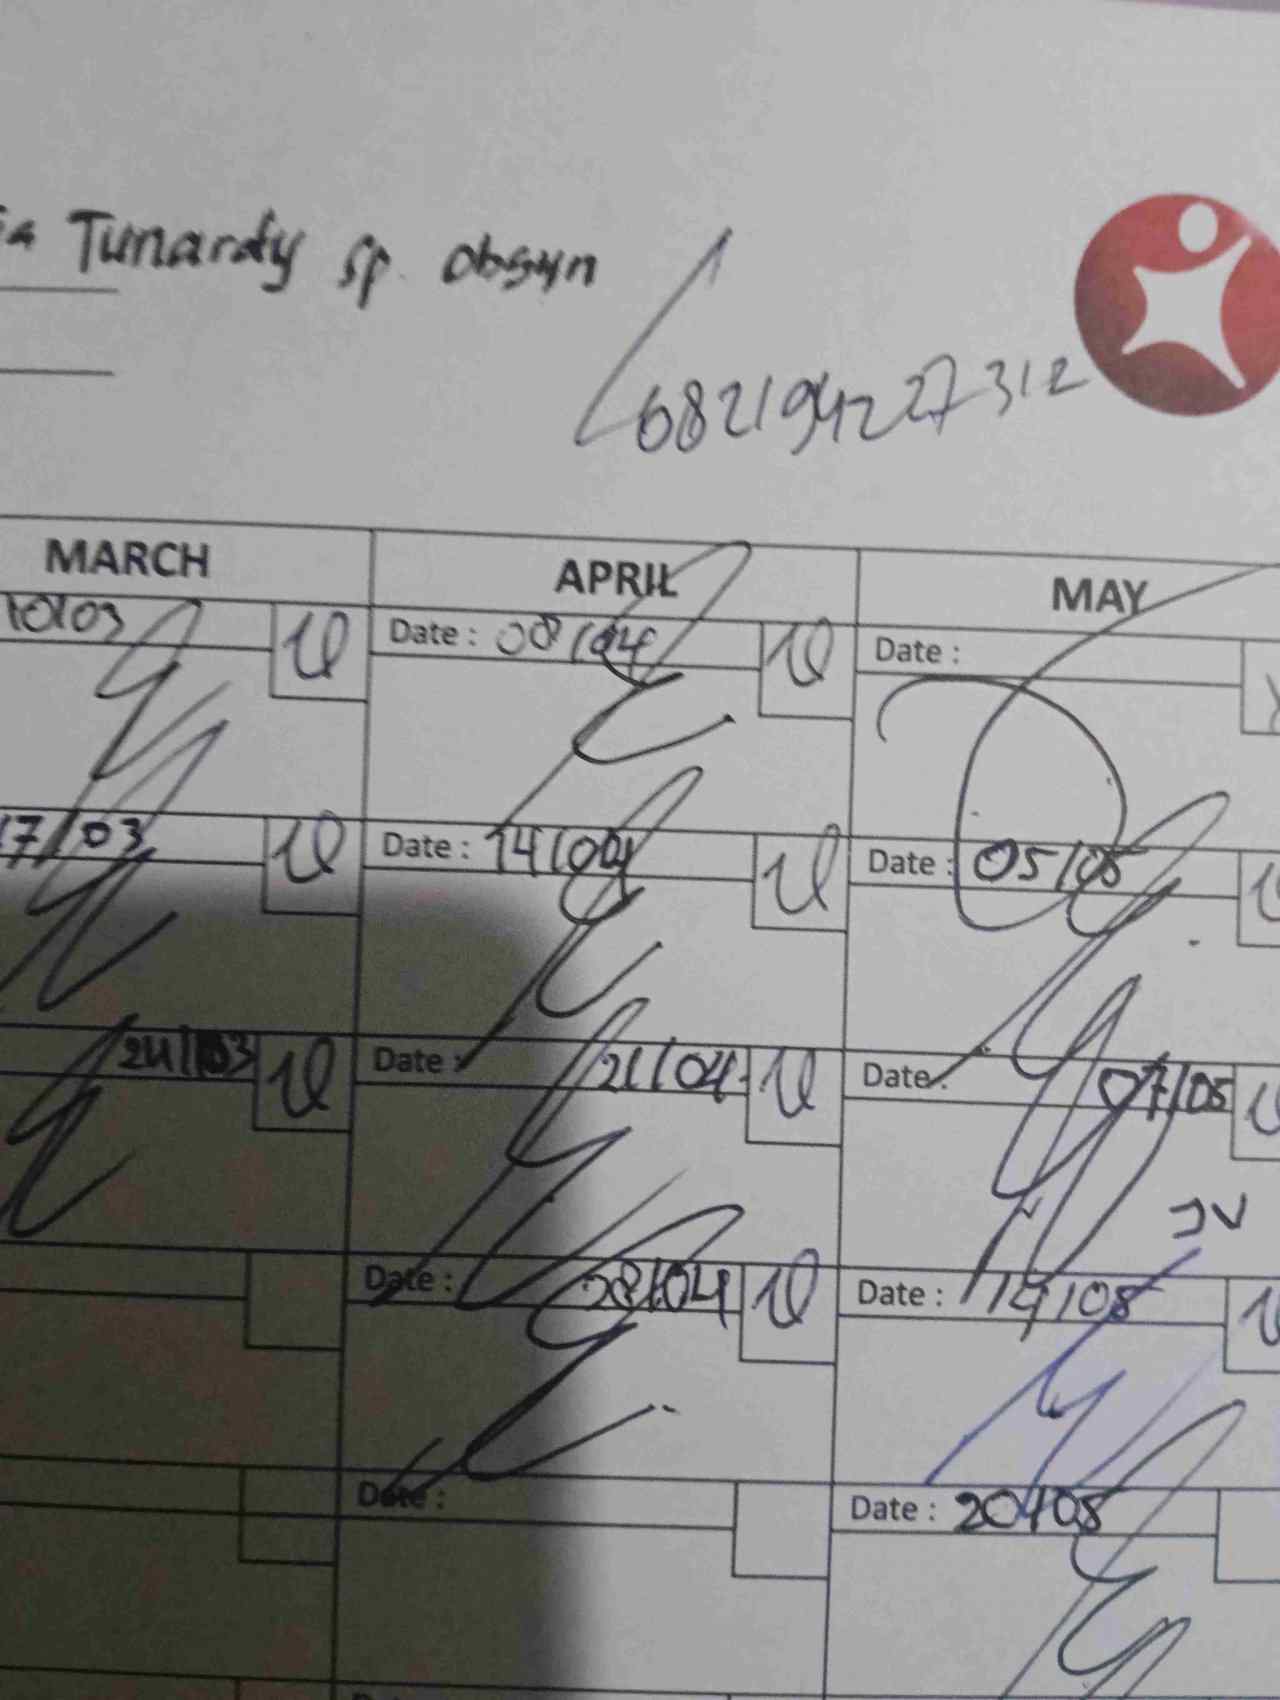 Tunardy sp. obsgyn
682194227312
MARCH APRIL MAY
10/03 Date : 08/04 Date :
17/03 Date : 14/04 Date : 05/05
24/03 Date : 21/04 Date : 07/05
Date : 28/04 Date : 14/05
Date : Date : 20/05